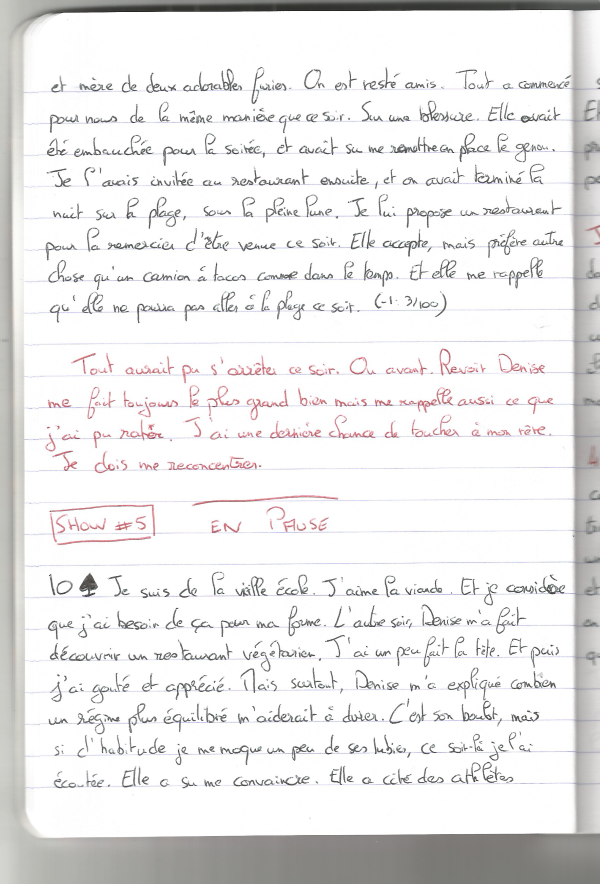 et mère de deux adorables furies. On est resté amis. Tout a commencé
pour nous de la même manière que ce soir. Sur une blessure. Elle avait
été embauchée pour la soirée, et avait su me remettre en place le genou.
Je l'avais invitée au restaurant ensuite, et on avait terminé la
nuit sur la plage, sous la pleine lune. Je lui propose un restaurant
pour la remercier d'être venue ce soir. Elle accepte, mais préfère autre
chose qu'un camion à tacos comme dans le temps. Et elle me rappelle
qu'elle ne pourra pas aller à la plage ce soir. (-1. 3/100)
Tout aurait pu s'arrêter ce soir. Ou avant. Revoir Denise
me fait toujours le plus grand bien mais me rappelle aussi ce que
j'ai pu rater. J'ai une dernière chance de toucher à mon rêve.
Je dois me reconcentrer.
SHOW #5 EN PAUSE
10 ♠ Je suis de la vieille école. J'aime la viande. Et je considère
que j'ai besoin de ça pour ma forme. L'autre soir, Denise m'a fait
découvrir un restaurant végétarien. J'ai un peu fait la tête. Et puis
j'ai gouté et apprécié. Mais surtout, Denise m'a expliqué combien
un régime plus équilibré m'aiderait à durer. C'est son boulot, mais
si d'habitude je me moque un peu de ses lubies, ce soir-là je l'ai
écoutée. Elle a su me convaincre. Elle a cité des athlètes